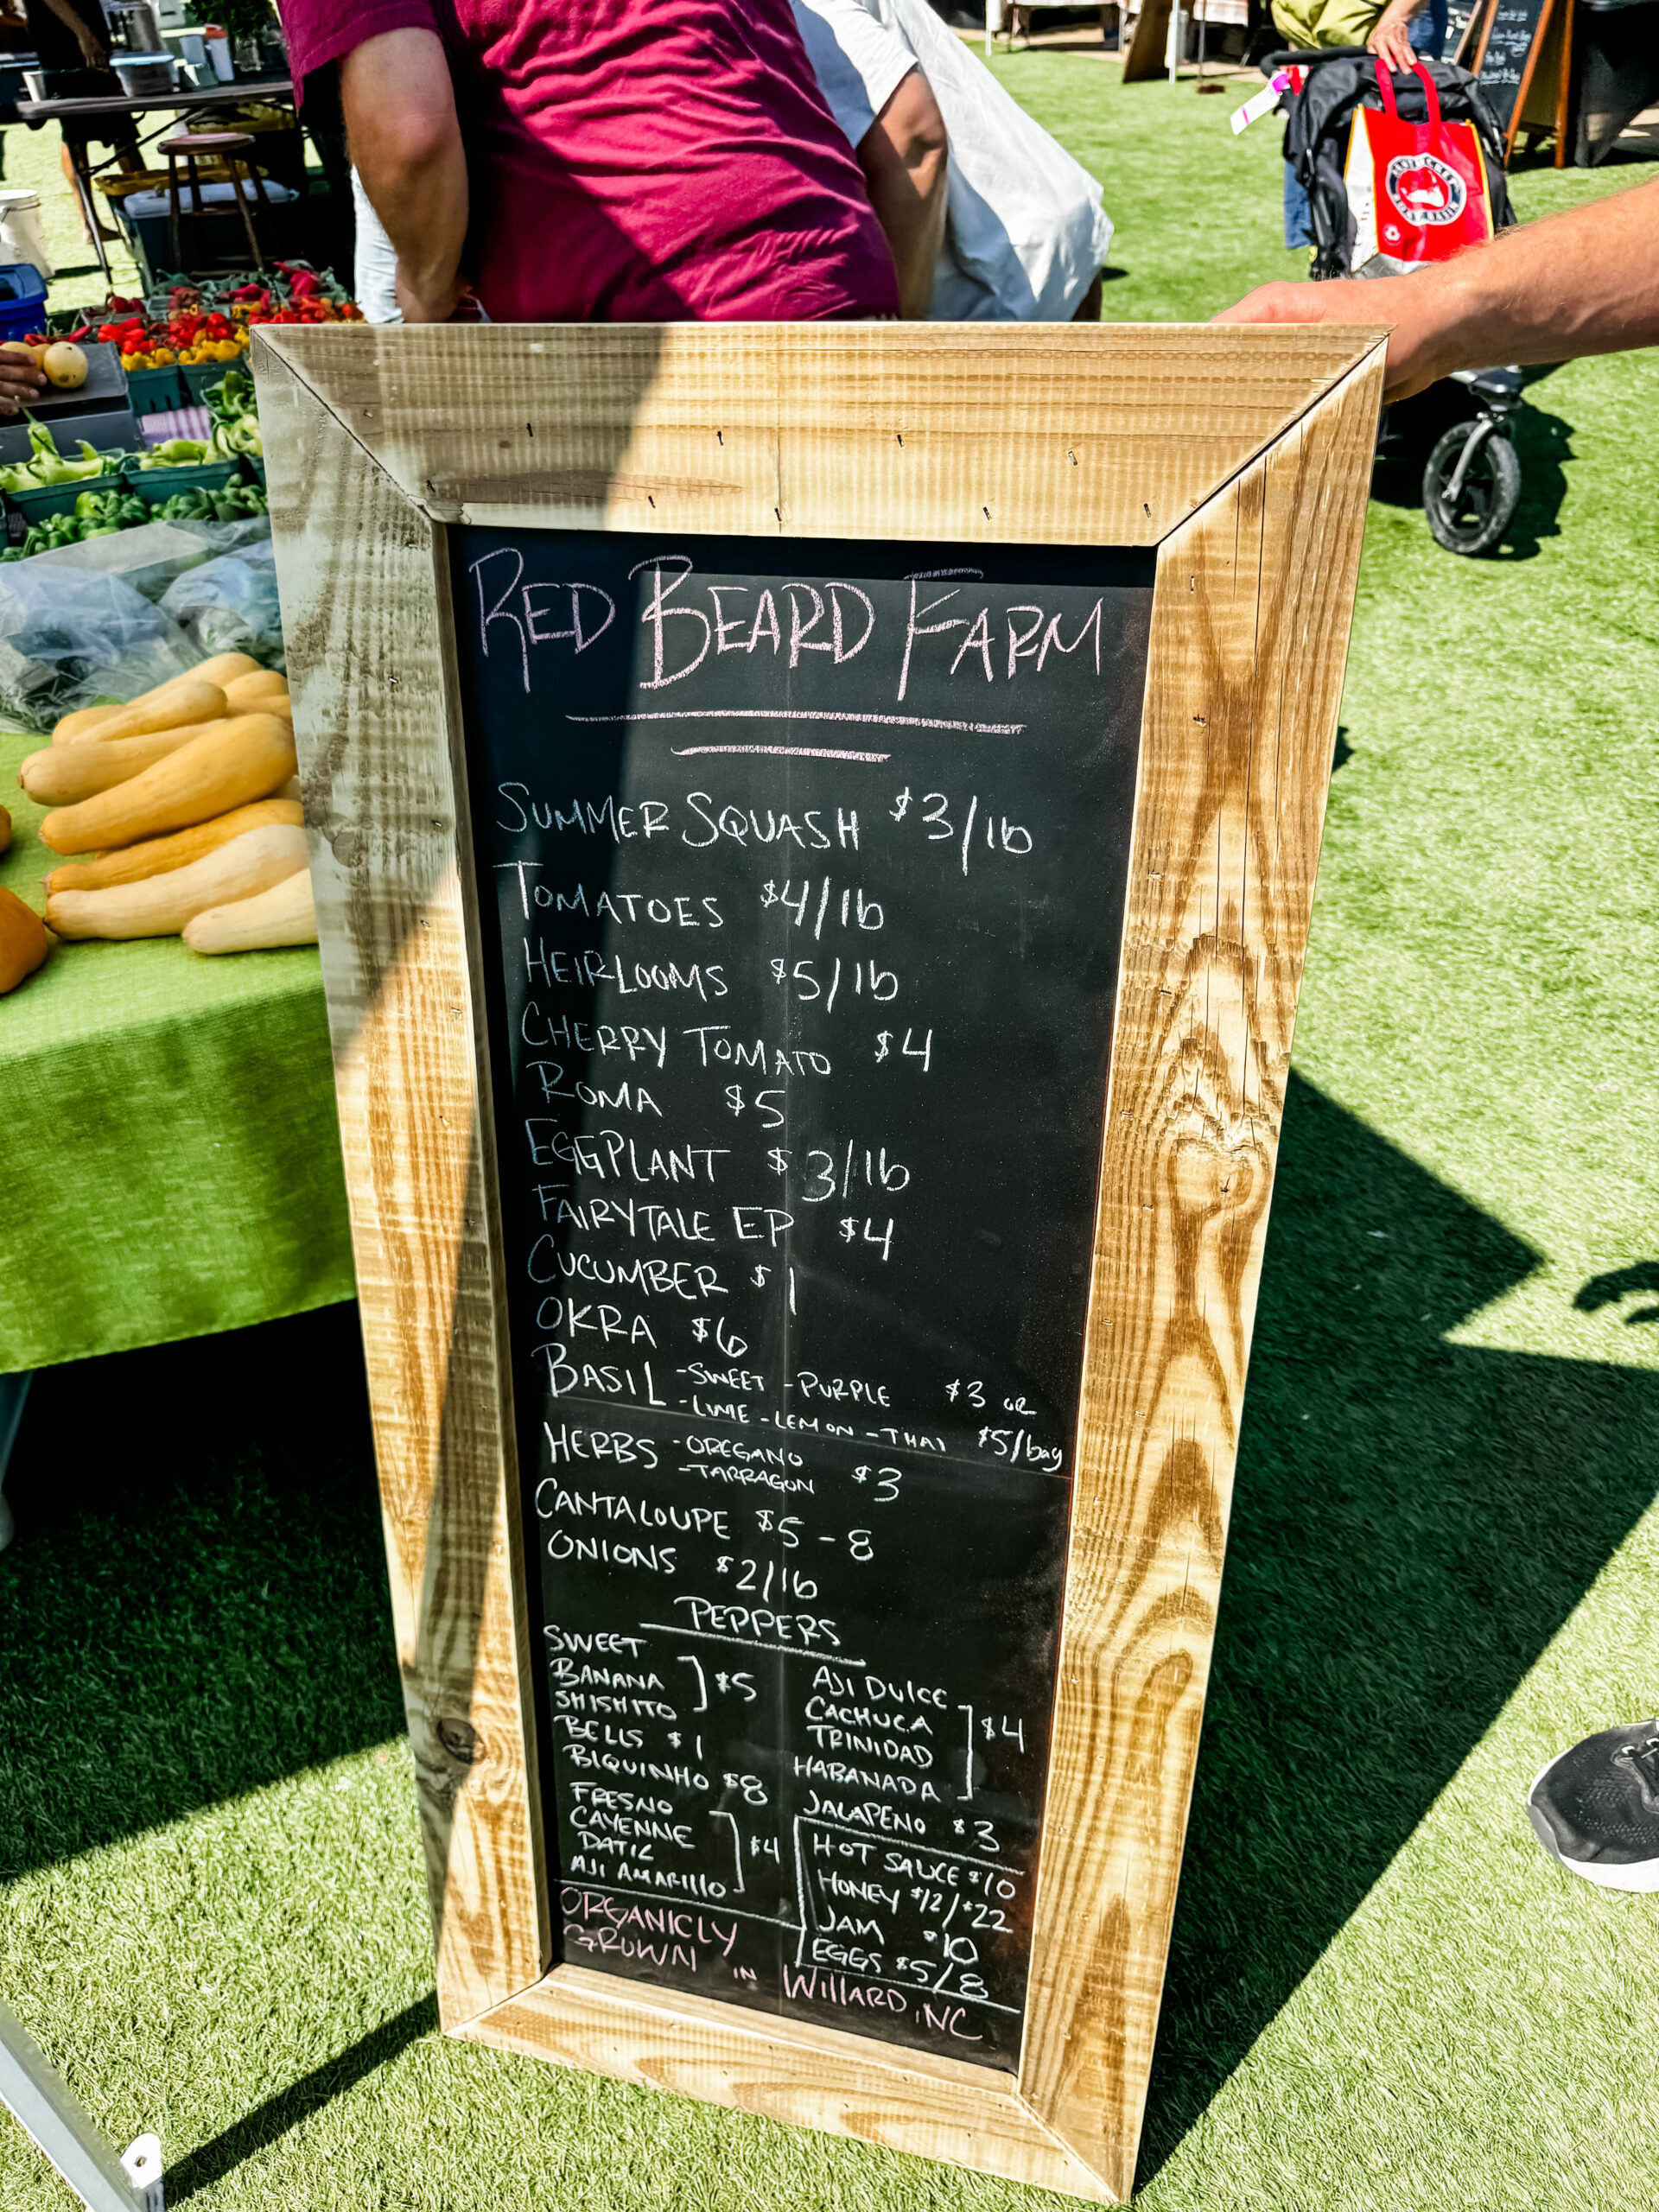 RED BEARD FARM
SUMMER SQUASH $3/lb
TOMATOES $4/lb
HEIRLOOMS $5/lb
CHERRY TOMATO $4
ROMA $5
EGGPLANT $3/lb
FAIRYTALE EP $4
CUCUMBER $1
OKRA $6
BASIL -SWEET -PURPLE $3 OR
-LIME -LEMON -THAI $5/bag
HERBS -OREGANO
-TARRAGON $3
CANTALOUPE $5-8
ONIONS $2/lb
PEPPERS
SWEET
BANANA
SHISHITO
$5
BELLS $1
BIQUINHO $8
FRESNO
CAYENNE
DATIL
AJI AMARILLO
$4
AJI DULCE
CACHUCA
TRINIDAD
HABANADA
$4
JALAPENO $3
HOT SAUCE $10
HONEY $12/$22
JAM $10
EGGS $5/8
ORGANICLY
GROWN IN WILLARD, NC